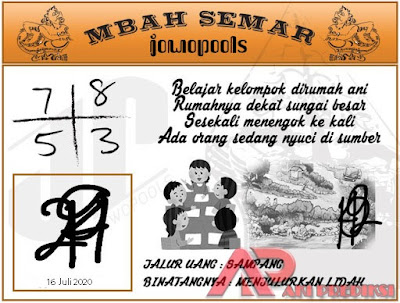 MBAH SEMAR
jowopools
7 8
5 3
Belajar kelompok dirumah ani
Rumahnya dekat sungai besar
Sesekali menengok ke kali
Ada orang sedang nyuci di sumber
16 Juli 2020
JALUR UANG : SAMPANG
BINATANGNYA : MENJULURKAN LIDAH